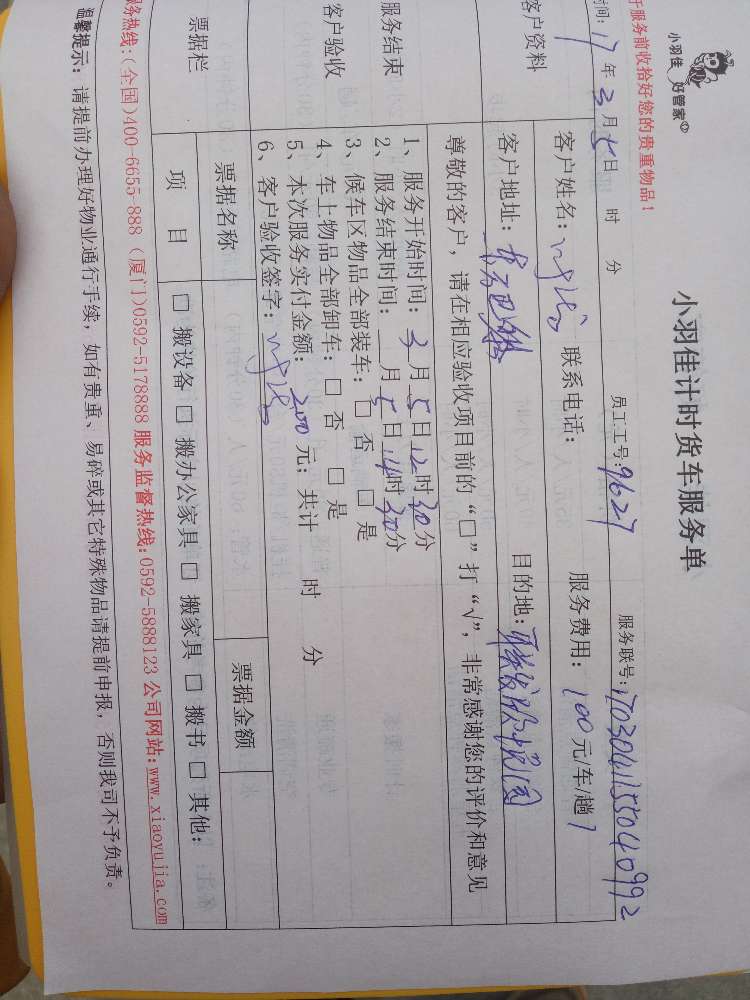 小羽佳 好管家
小羽佳计时货车服务单
于服务前收拾好您的贵重物品！
时间：17年3月5日 时 分 员工工号：9627 服务联号：170304115504099２
客户资料
客户姓名： 联系电话： 服务费用：100元/车/趟
客户地址：东方巴黎 目的地：联发欣悦园
尊敬的客户，请在相应验收项目前的“□”打“√”，非常感谢您的评价和意见
服务结束
客户验收
1、服务开始时间：3月5日12时30分
2、服务结束时间：月5日14时30分
3、候车区物品全部装车：□ 否 □ 是
4、车上物品全部卸车：□ 否 □ 是
5、本次服务实付金额：200元；共计 时 分
6、客户验收签字：
票据栏
票据名称 票据金额
项目 □ 搬设备 □ 搬办公家具 □ 搬家具 □ 搬书 □ 其他：
服务热线：(全国)400-6655-888 (厦门)0592-5178888 服务监督热线：0592-5888123 公司网站：www.xiaoyujia.com
温馨提示：请提前办理好物业通行手续，如有贵重、易碎或其它特殊物品请提前申报，否则我司不予负责。